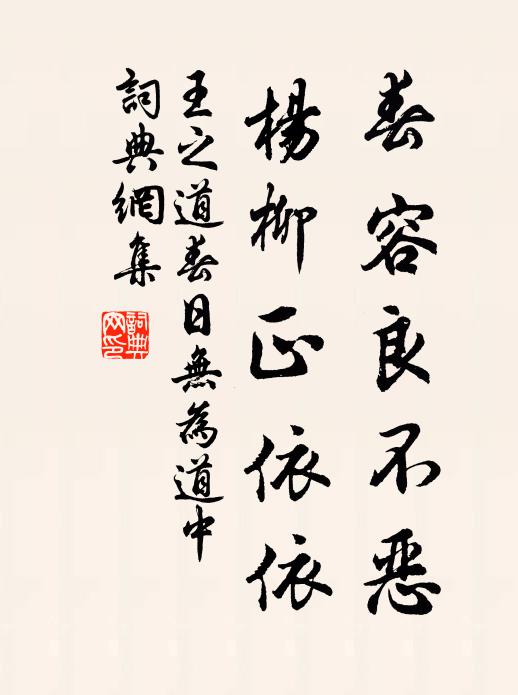 春容良不惡
楊柳正依依
王之道春日無為道中
詞典網集
詞典網印